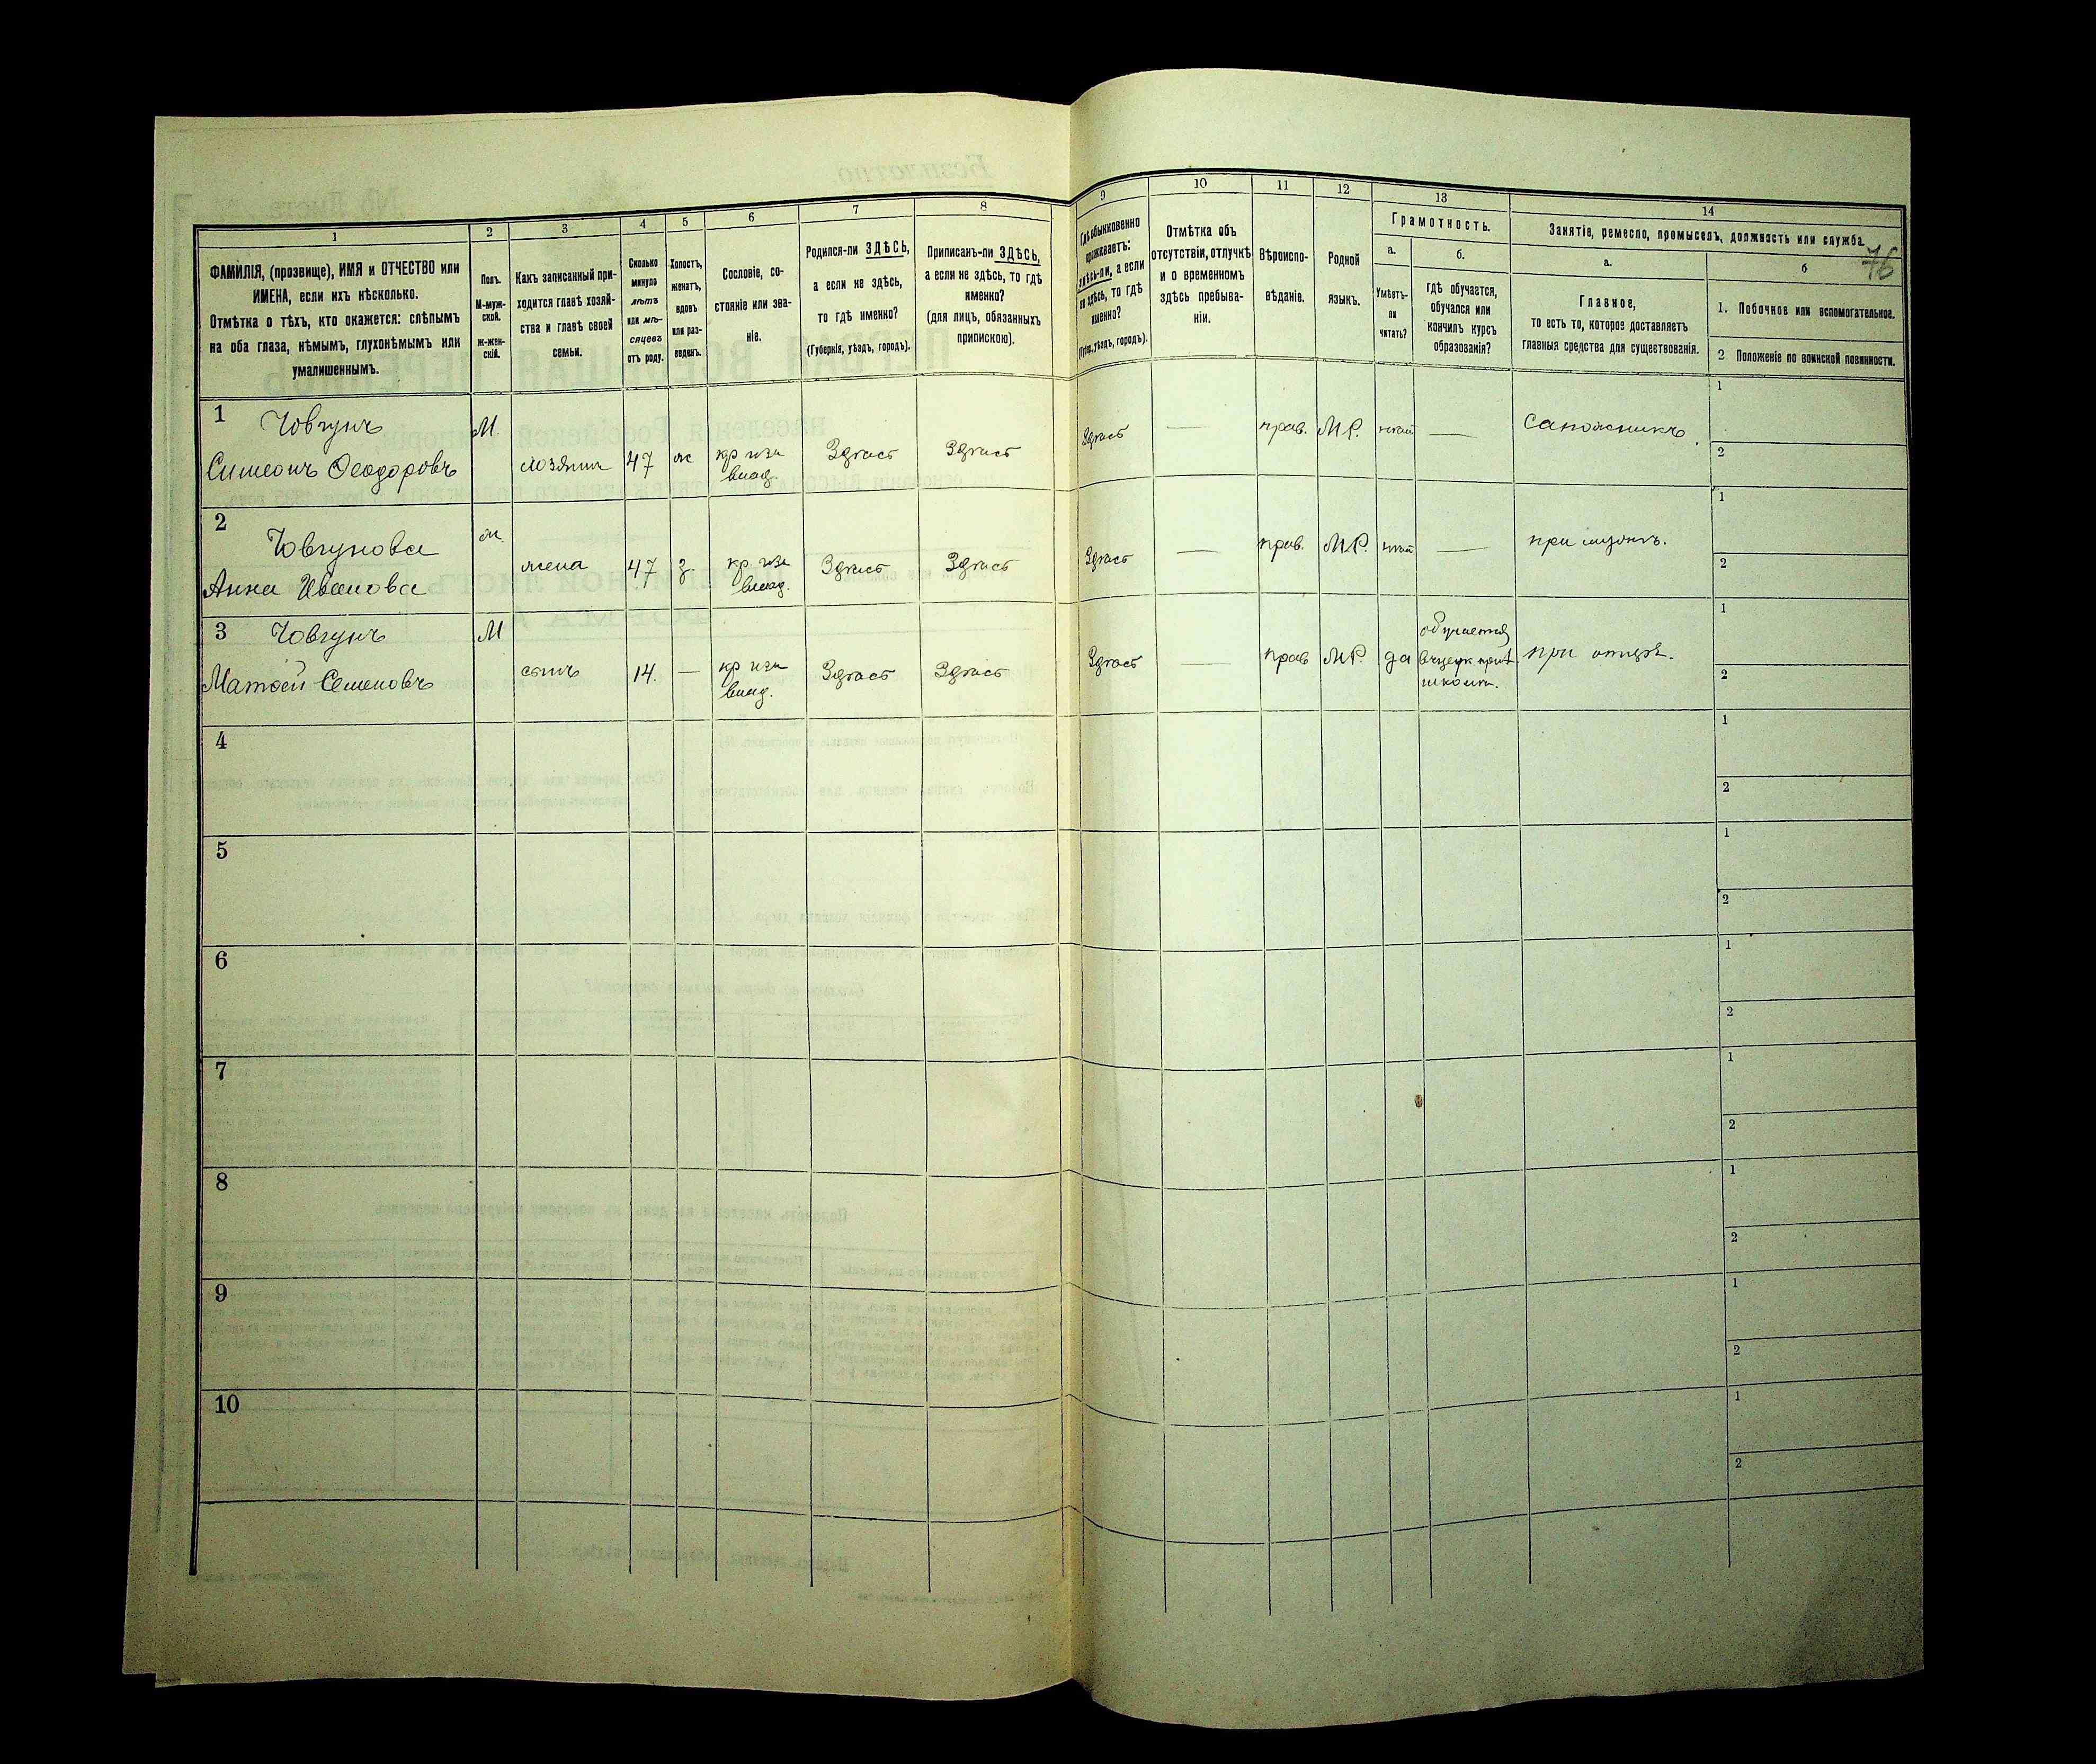 1
2
3
4
5
6
7
8
ФАМИЛІЯ, (прозвище), ИМЯ и ОТЧЕСТВО или
ИМЕНА, если ихъ нѣсколько.
Отмѣтка о тѣхъ, кто окажется: слѣпымъ
на оба глаза, нѣмымъ, глухонѣмымъ или
умалишеннымъ.
Полъ.
М-муж-
ской.
Ж-жен-
скій.
Какъ записанный при-
ходится главѣ хозяй-
ства и главѣ своей
семьи.
Сколько
минуло
лѣтъ
или мѣ-
сяцевъ
отъ роду.
Холостъ,
женатъ,
вдовъ
или раз-
веденъ.
Сословіе, со-
стояніе или зва-
ніе.
Родился-ли ЗДѢСЬ,
а если не здѣсь,
то гдѣ именно?
(Губернія, уѣздъ, городъ).
Приписанъ-ли ЗДѢСЬ,
а если не здѣсь, то гдѣ
именно?
(для лицъ, обязанныхъ
припискою).
9
10
11
12
13
14
Гдѣ обыкновенно
проживаетъ:
здѣсь-ли, а если
не здѣсь, то гдѣ
именно?
(Губ., уѣздъ, городъ).
Отмѣтка объ
отсутствіи, отлучкѣ
и о временномъ
здѣсь пребыва-
ніи.
Вѣроиспо-
вѣданіе.
Родной
языкъ.
Грамотность.
а.
б.
Умѣетъ-
ли
читать?
гдѣ обучается,
обучался или
кончилъ курсъ
образованія?
Занятіе, ремесло, промыселъ, должность или служба.
76
а.
б
Главное,
то есть то, которое доставляетъ
главныя средства для существованія.
1. Побочное или вспомогательное.
2 Положеніе по воинской повинности.
1 Човгунъ
Симеонъ Ѳеодоровъ
М.
хозяинъ
47
ж
кр изъ
влад.
Здѣсь
Здѣсь
Здѣсь
—
прав.
М.Р.
нѣтъ
—
Сапожникъ.
1
2
2 Човгунова
Анна Иванова
ж.
жена
47
з.
кр изъ
влад.
Здѣсь
Здѣсь
Здѣсь
—
прав.
М.Р.
нѣтъ
—
при мужѣ.
1
2
3 Човгунъ
Матѳей Семеновъ
М
сынъ
14.
—
кр изъ
влад.
Здѣсь
Здѣсь
Здѣсь
—
прав
М.Р.
да
обучается
школѣ.
при отцѣ.
1
2
4
1
2
5
1
2
6
1
2
7
1
2
8
1
2
9
1
2
10
1
2